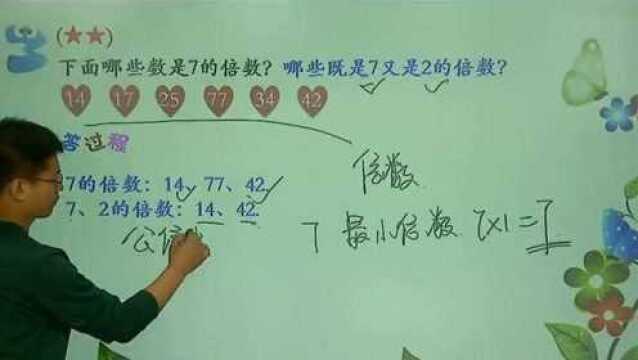 (★★)
下面哪些数是7的倍数？哪些既是7又是2的倍数？
14 17 25 77 34 42
答过程
7的倍数：14、77、42.
7、2的倍数：14、42.
倍数
公倍
7 最小倍数 7×1=7